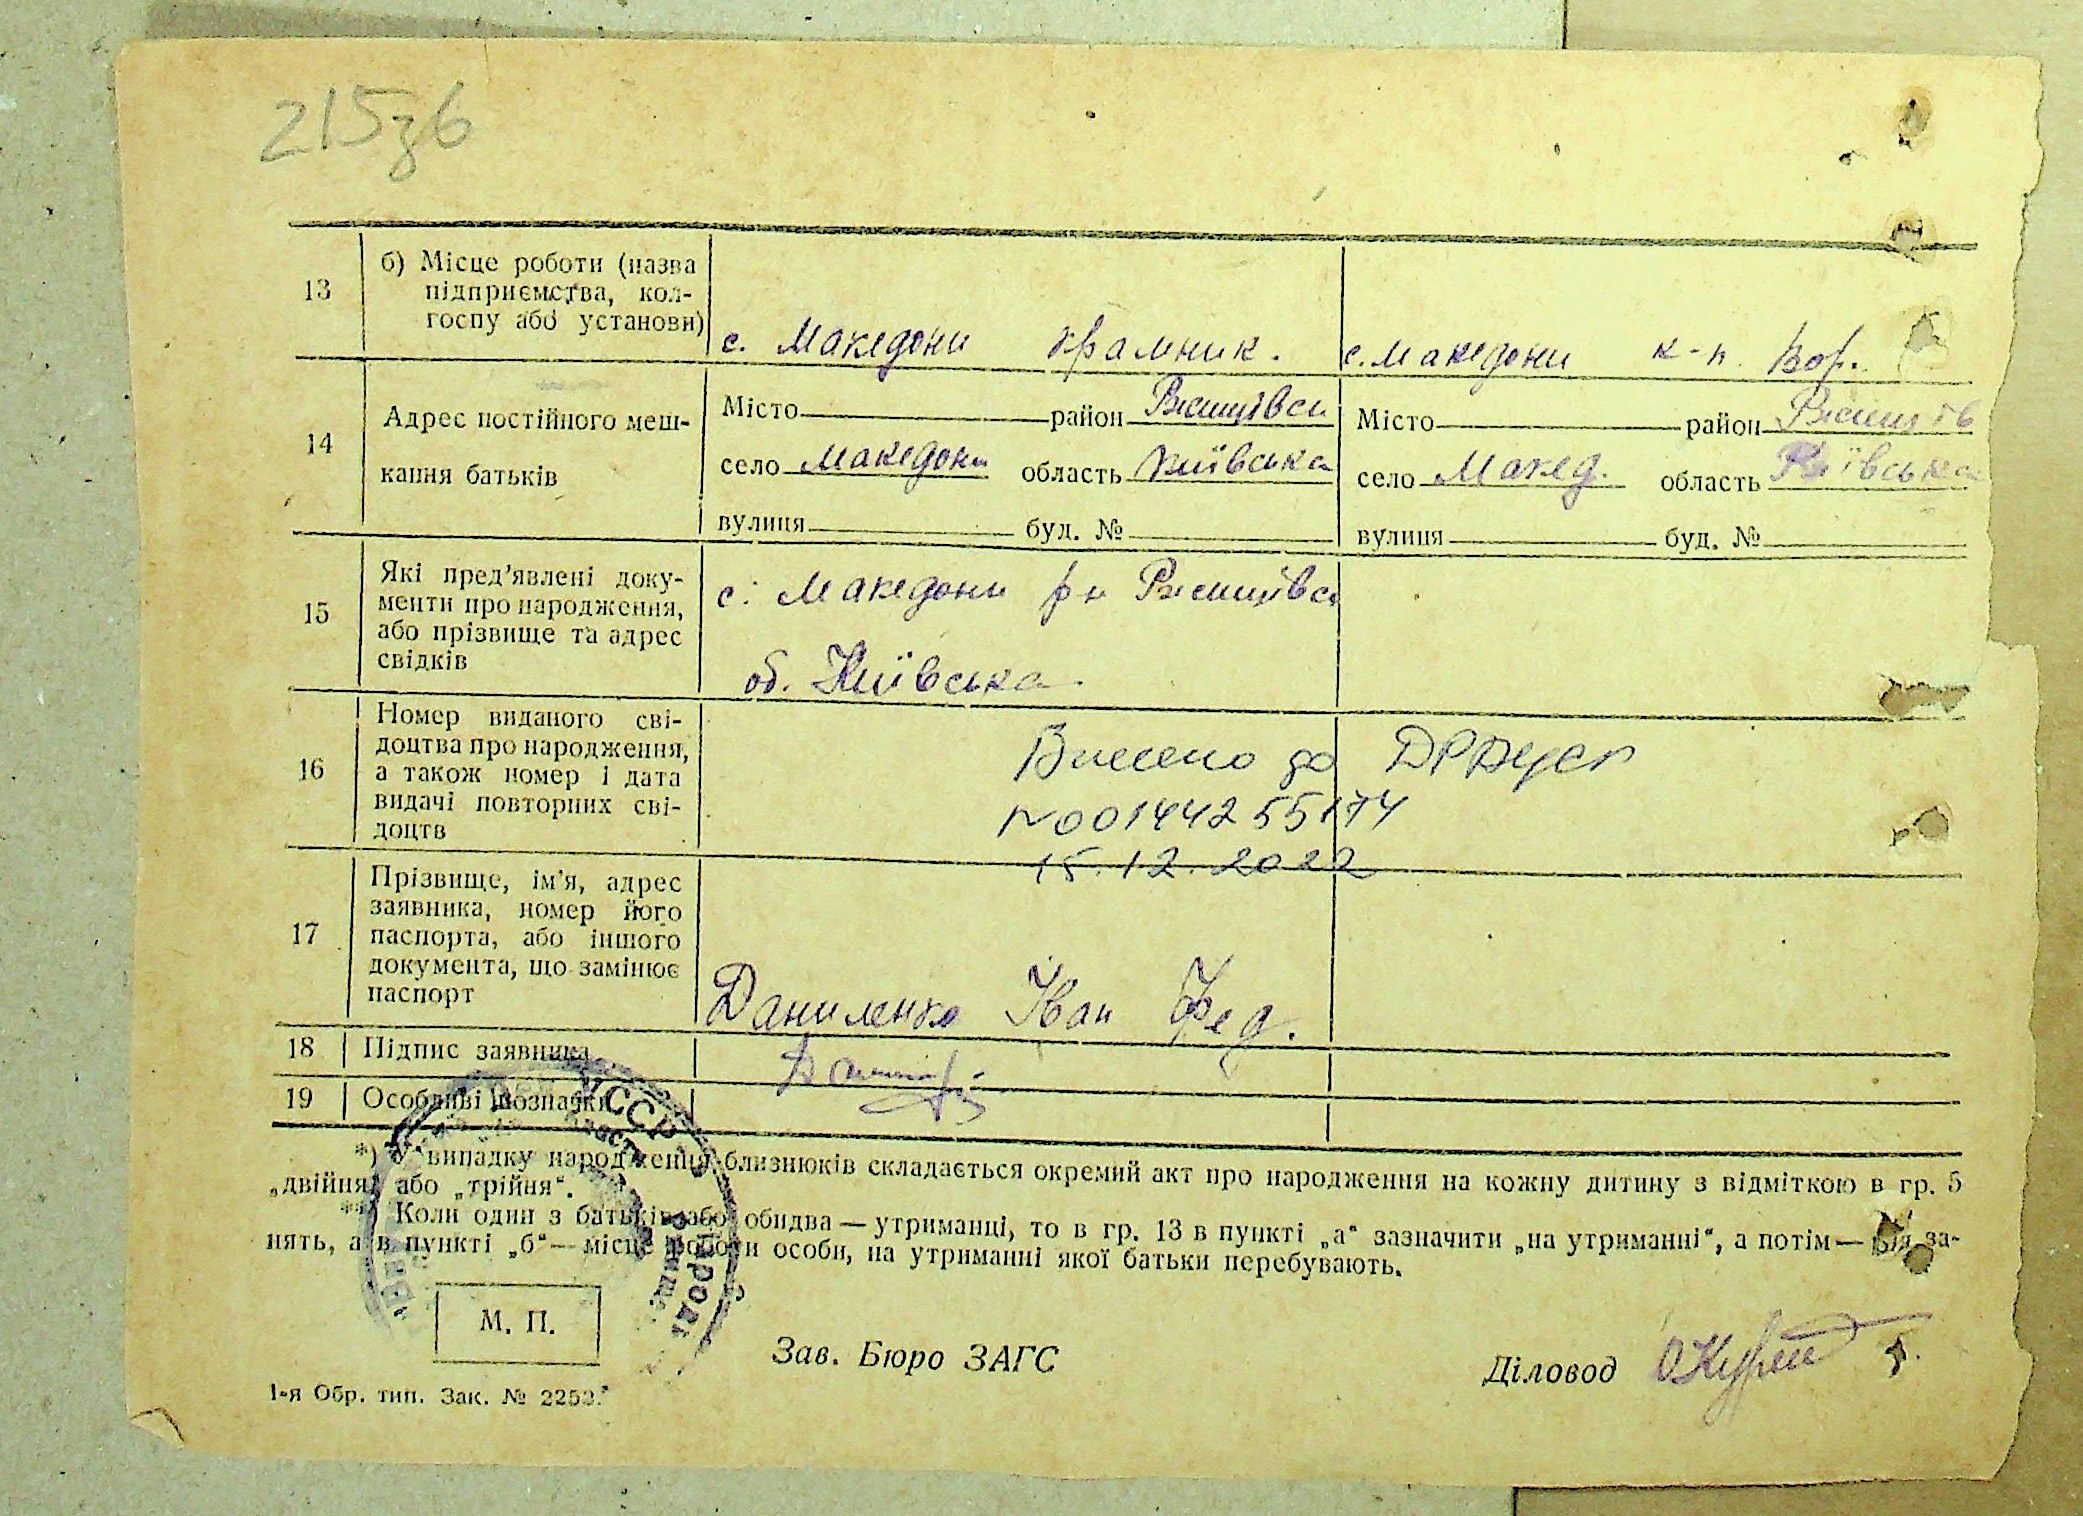 215зб
13
б) Місце роботи (назва
підприємства, кол-
госпу або установи)
с. Македони крамник.
с. Македони к-п Вор.
14
Адрес постійного меш-
кання батьків
Місто район Ржищівсь
село Македони область Київська
вулиця буд. №
Місто район Ржищів
село Македон. область Київська
вулиця буд. №
15
Які пред'явлені доку-
менти про народження,
або прізвище та адрес
свідків
с. Македони рн Ржищівсь
об. Київська.
16
Номер виданого сві-
доцтва про народження,
а також номер і дата
видачі повторних сві-
доцтв
Внесено до ДРАЦСГ
№00144255174
15.12.2022
17
Прізвище, ім'я, адрес
заявника, номер його
паспорта, або іншого
документа, що замінює
паспорт
Даниленко Іван Фед.
18
Підпис заявника
19
Особливі позначки
УССР
*) У випадку народження близнюків складається окремий акт про народження на кожну дитину з відміткою в гр. 5
„двійня“ або „трійня“.
**) Коли один з батьків або обидва — утриманці, то в гр. 13 в пункті „а“ зазначити „на утриманні“, а потім — під за-
нять, а в пункті „б“ — місце роботи особи, на утриманні якої батьки перебувають.
М. П.
Зав. Бюро ЗАГС
Діловод
1-я Обр. тип. Зак. № 2252.